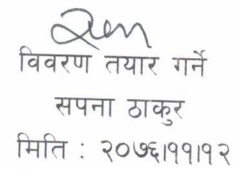 विवरण तयार गर्ने
सपना ठाकुर
मिति : २०७६।११।१२